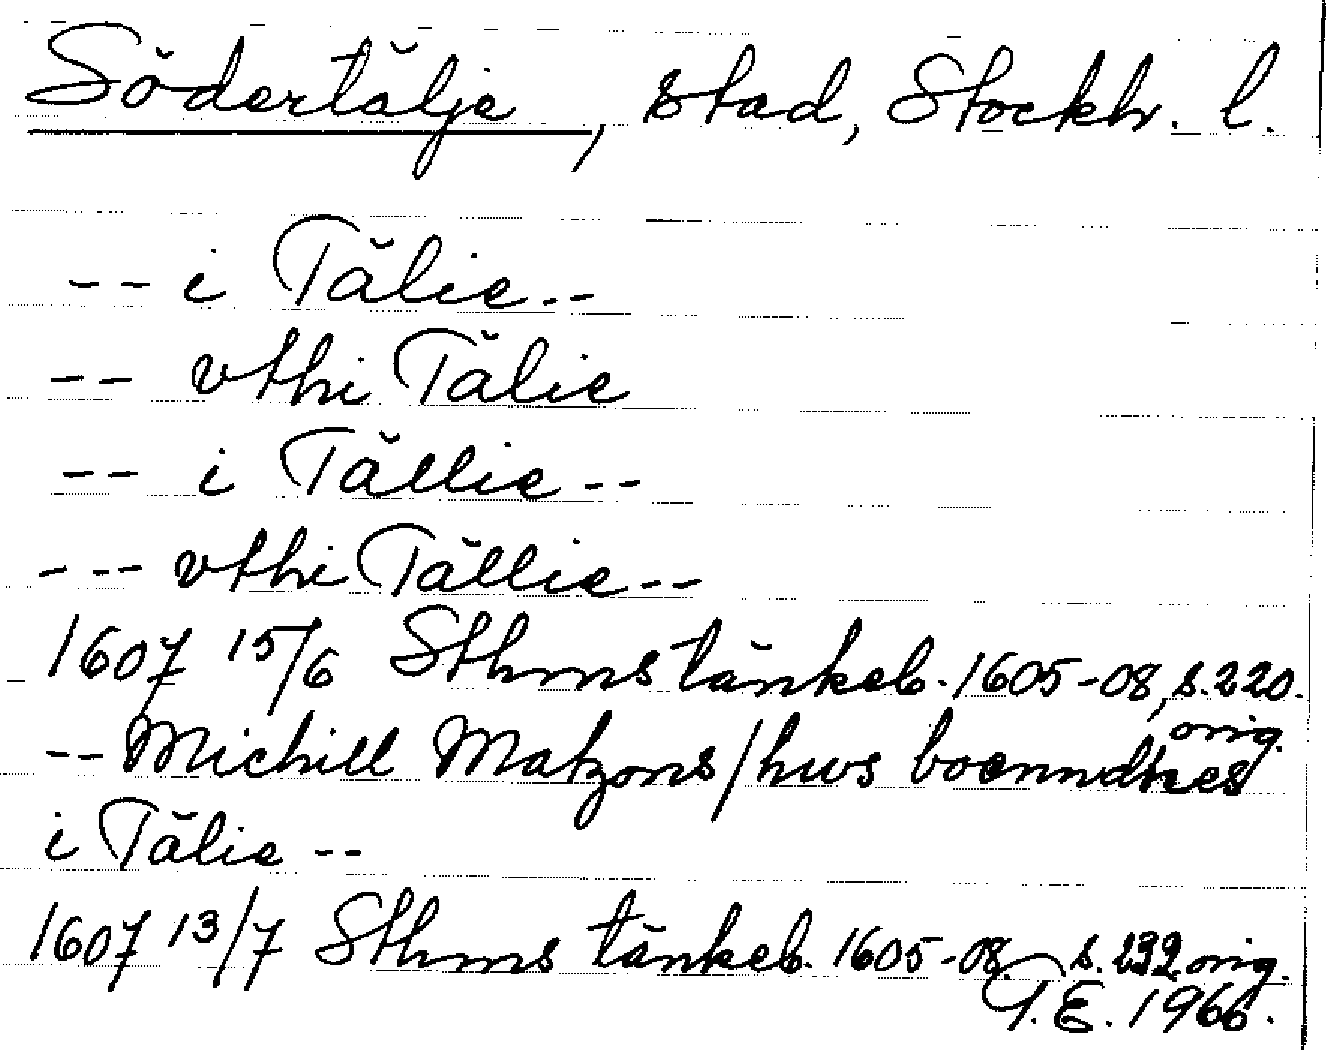 Södertälje, stad, Stockh. l.
-- i Tälie --
-- vthi Tälie
-- i Tällie --
--- vthi Tällie --
1607 15/6 Sthms tänkeb. 1605-08, s. 220.
orig.
-- Michill Matzons / hws boenndhes
i Tälie --
1607 13/7 Sthms tänkeb. 1605-08 s. 232 orig.
T.E. 1966.